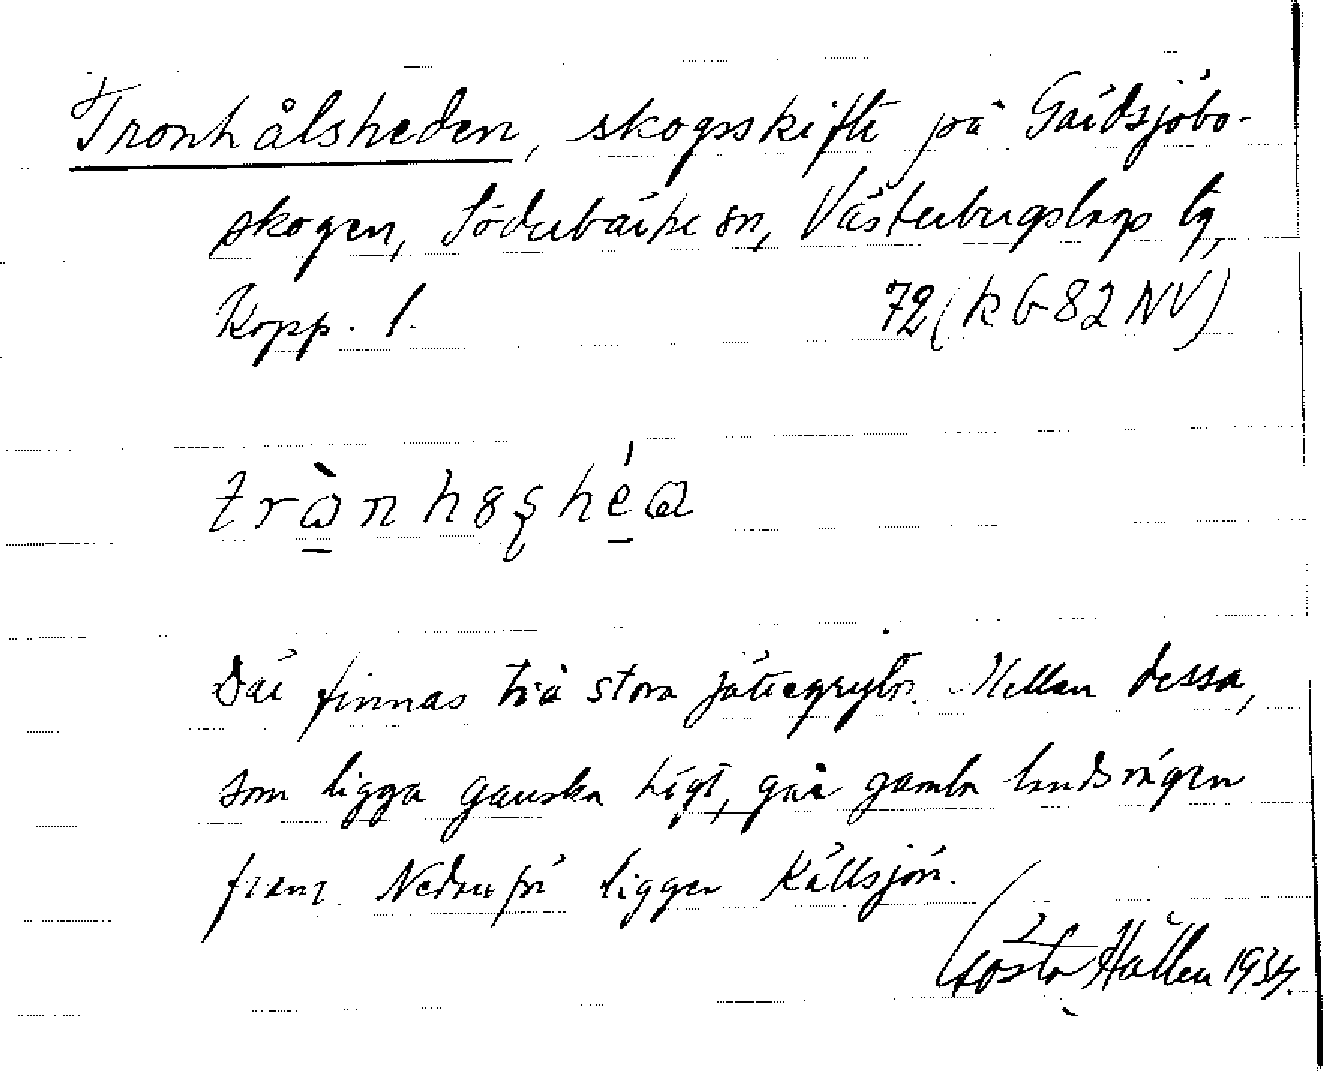 Tronhålsheden, skogsskifte på Gärdsjöbo-
skogen, Söderbärke sn, Västerbergslags tg,
Kopp. l. 72 (k G 82 NV)
Där finnas två stora jättegrytor. Mellan dessa,
som ligga ganska högt, går gamla landsvägen
fram. Nedanför ligger Källsjön.
Gösta Hållen 1934.